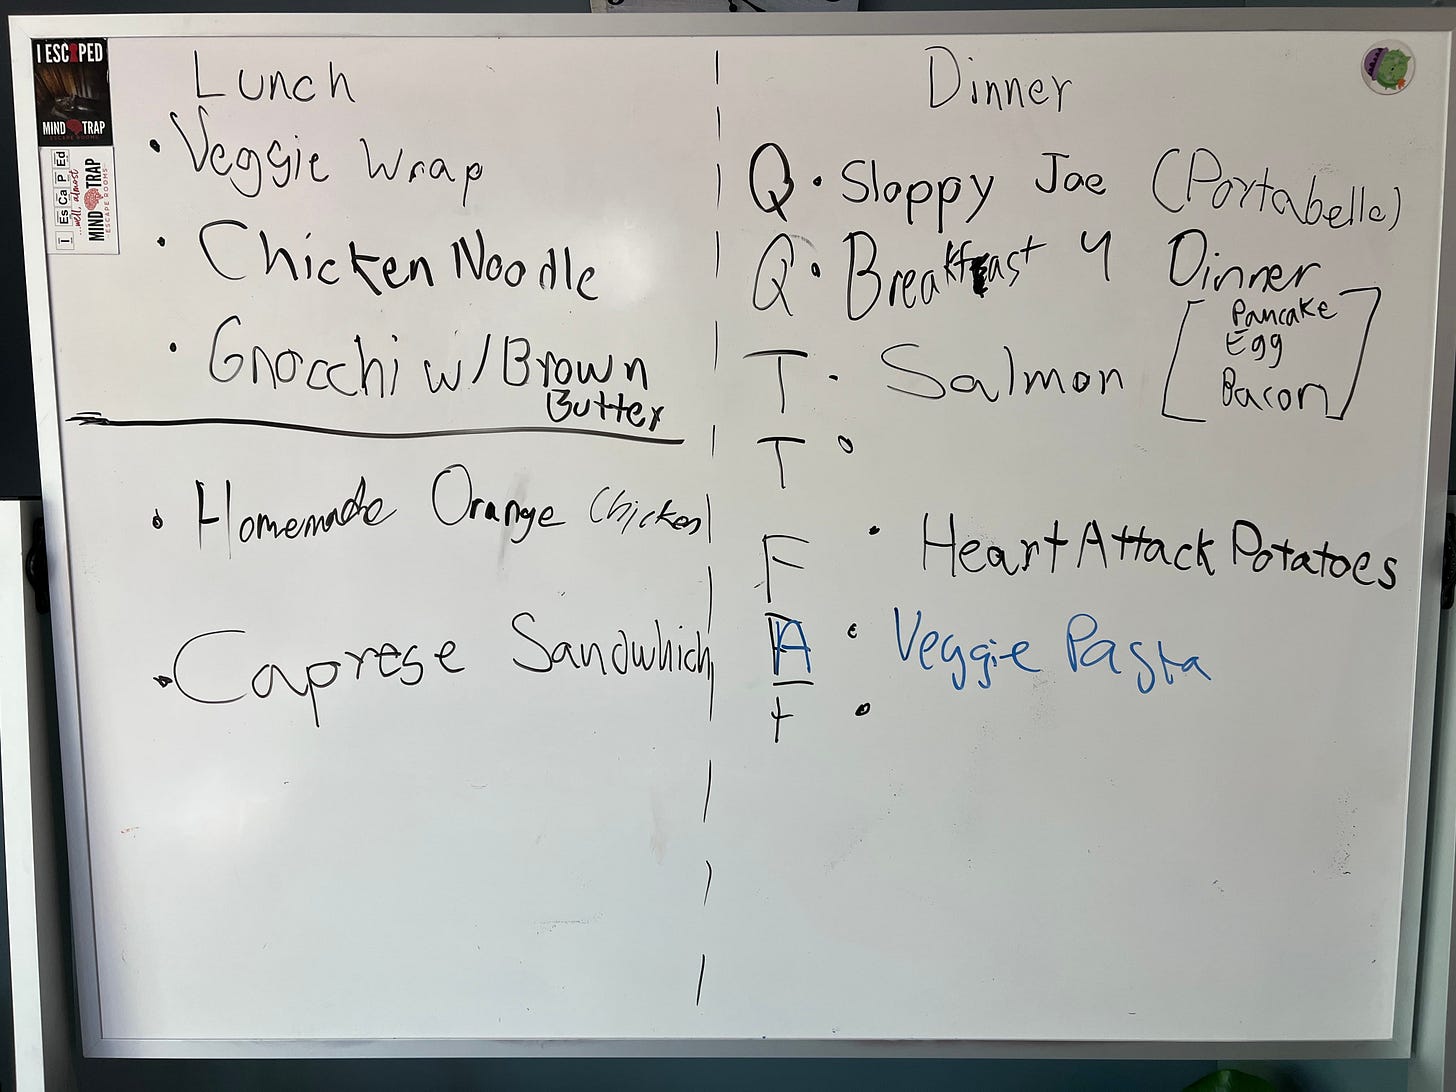 I ESCAPED
MIND TRAP
ESCAPE ROOMS
I EsCaPEd
...well, almost
MIND TRAP
ESCAPE ROOMS
Lunch
• Veggie Wrap
• Chicken Noodle
• Gnocchi w/ Brown
Butter
• Homemade Orange Chicken
• Caprese Sandwhich
Dinner
Q • Sloppy Joe (Portabelle)
Q • Breakfast 4 Dinner
[Pancake
Egg
Bacon]
T • Salmon
T •
F • Heart Attack Potatoes
A • Veggie Pasta
t •